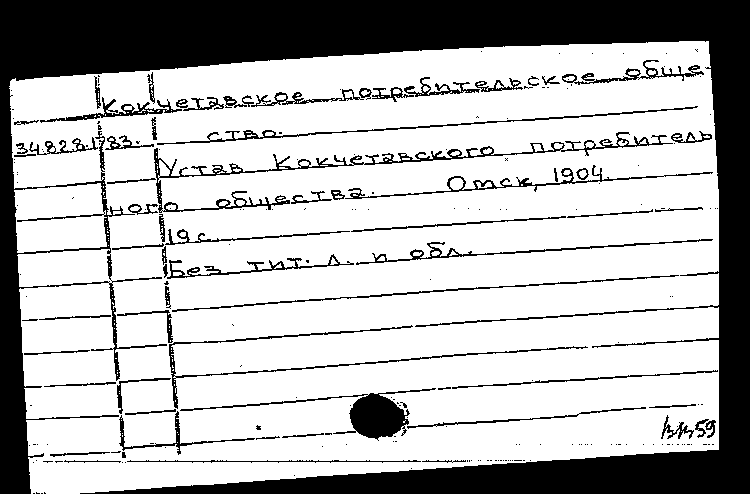 Кокчетавское потребительское обще-
34.82.8.1783. ство.
Устав Кокчетавского потребитель
ного общества. Омск, 1904.
19 с.
Без тит. л. и обл.
59